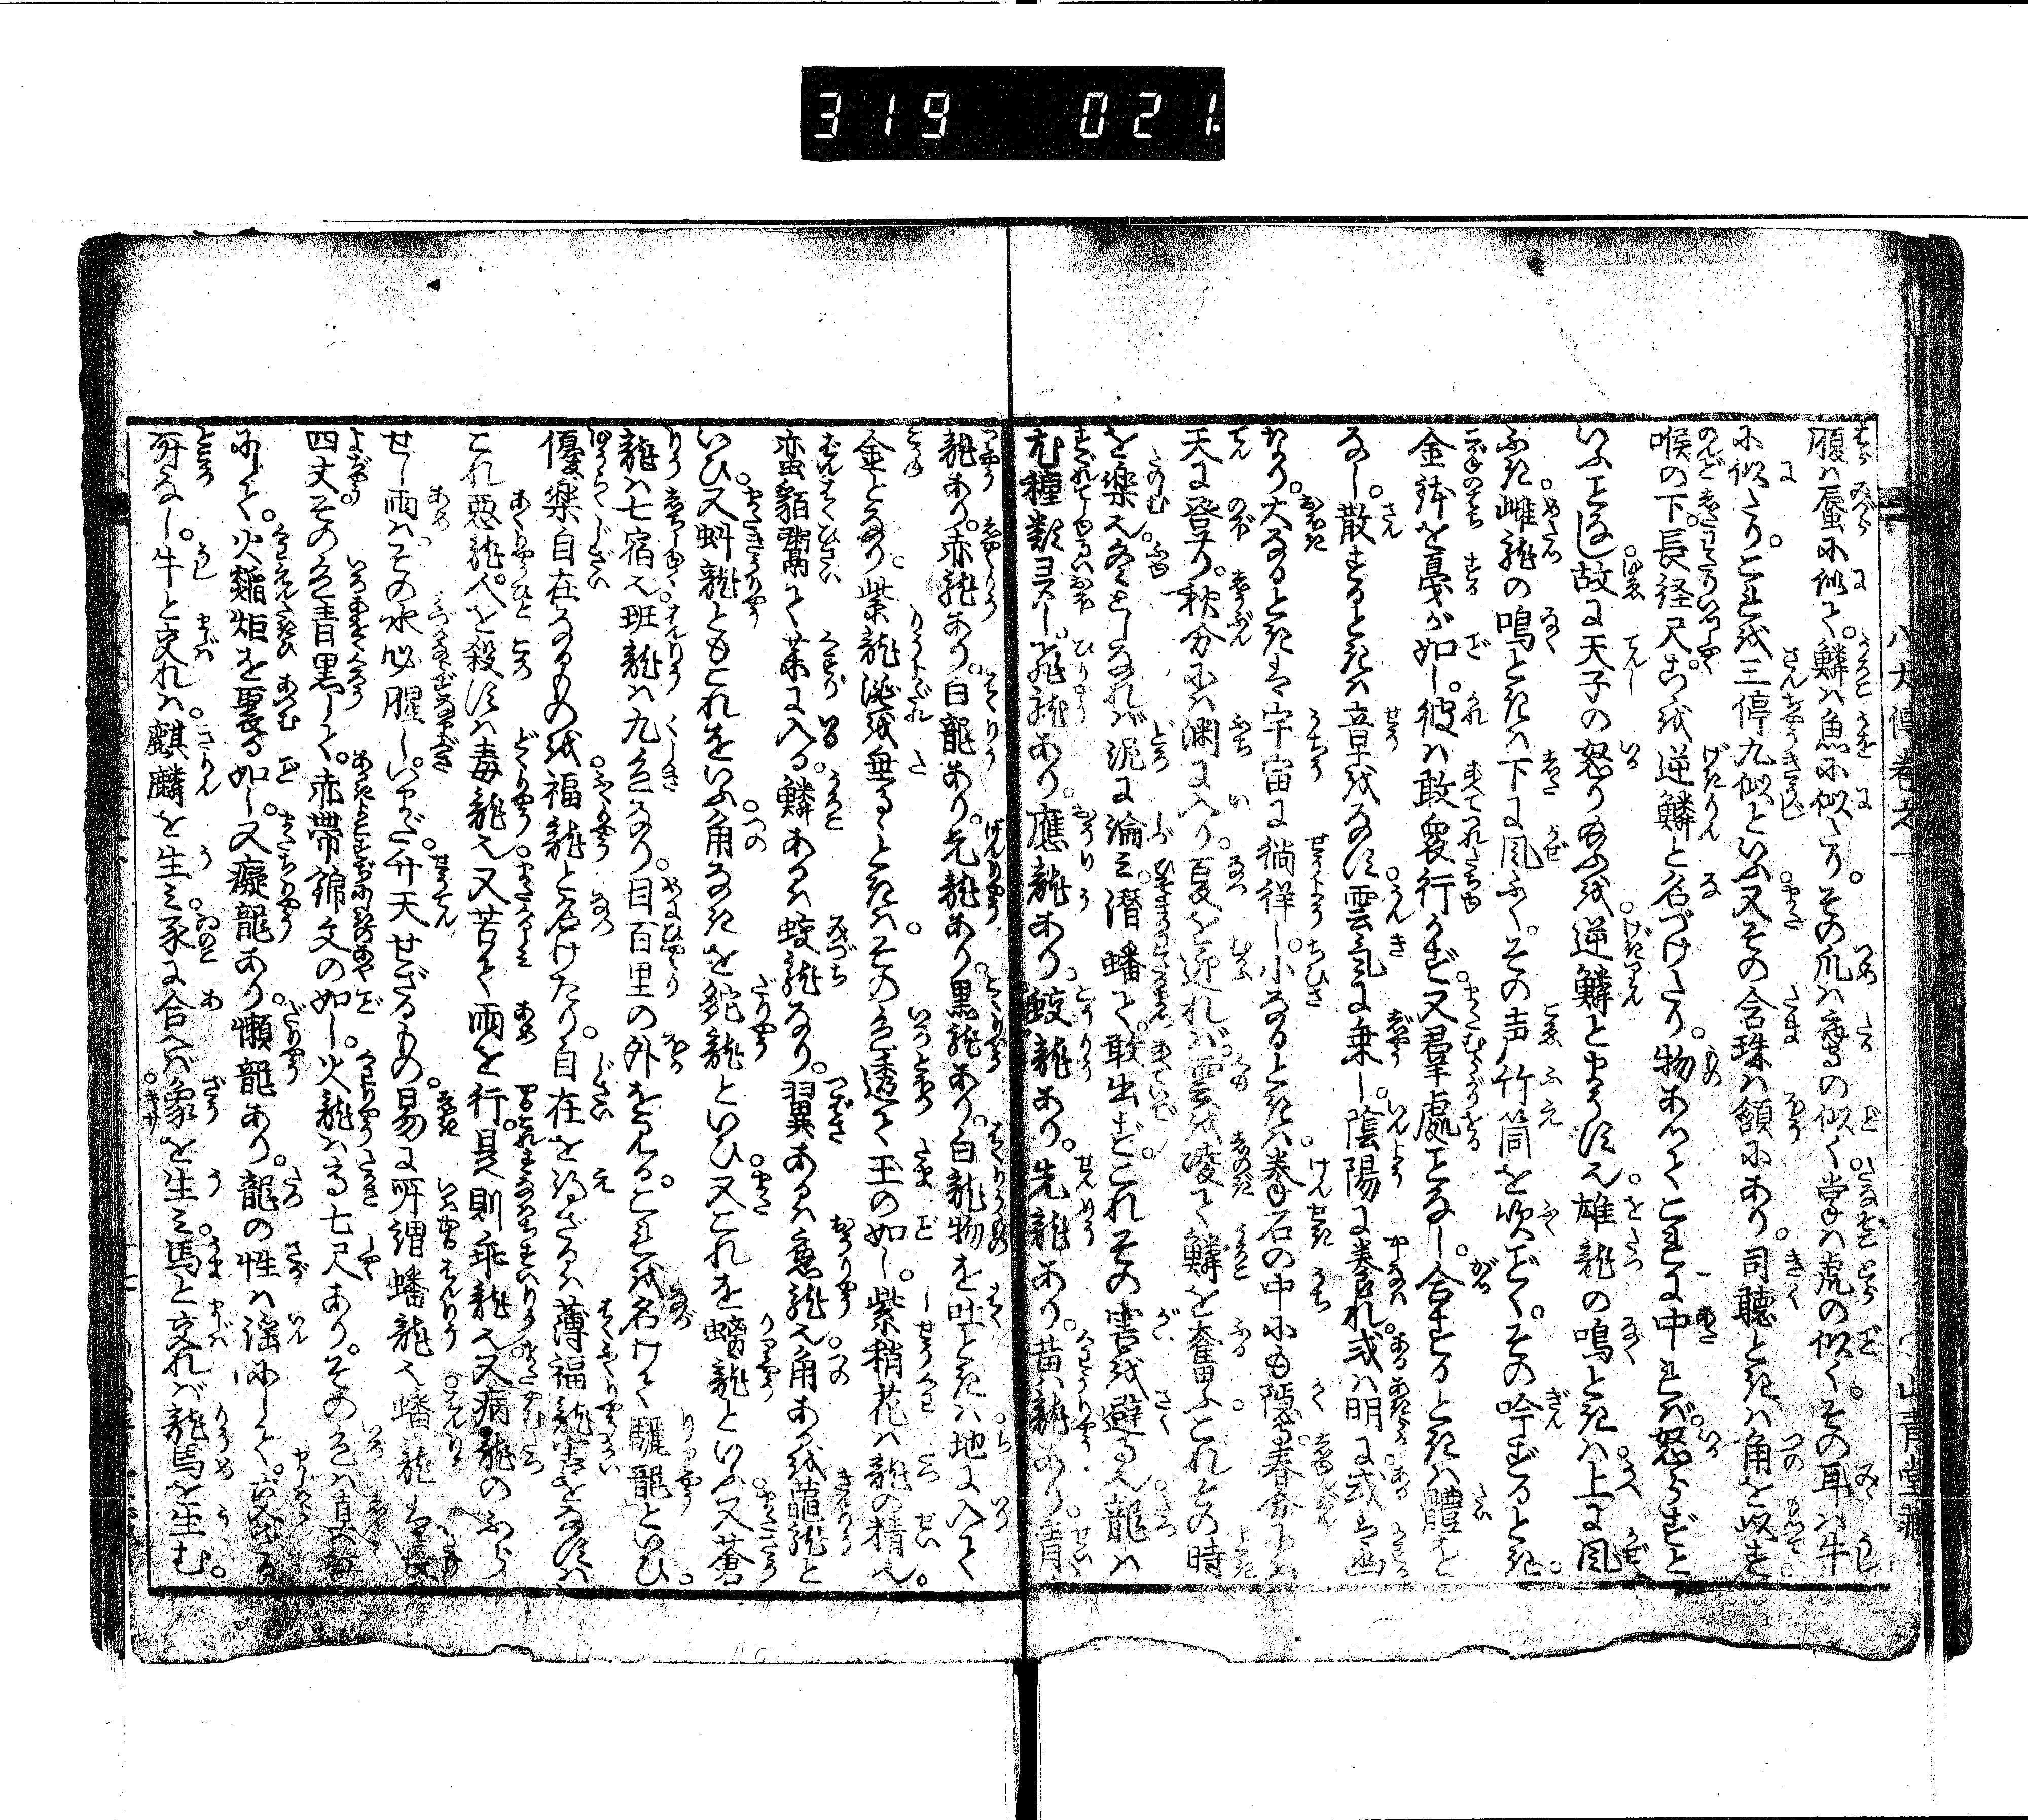 319 021.
八犬傳卷之一
山青堂藏
腹は蜃に似て。鱗は魚に似たり。その爪は鷹の似く掌は虎の似く。その耳は牛
に似たり。これを三停九似といふ。又その含珠は頷にあり。司聽ときは角を以す。
喉の下長径尺。こゝを逆鱗と名づけたり。物あつてこれに中れば。怒らずと
いふことなし。故に天子の怒り給ふを。逆鱗とまうす也。雄龍の鳴ときは上に風
ふき。雌龍の鳴ときは下に風ふく。その声竹筒を吹ごとく。その吟ずるとき。
金鉢を戛が如し。彼は敢衆行かず。又羣處ことなし。合するときは體を
なし。散するときは章をなす。雲氣に乗し。陰陽に養れ。或は明に或は幽
なり。大なるときは宇宙に徜徉し。小なるときは。拳石の中にも隠る。春分には
天に登り。秋分には渊に入り。夏を迎れば。雲を凌て鱗を奮ふ。これその時
を樂む也。冬としなれば泥に淪み。潜蟠て。敢出ず。これその害を避る也。龍は
尤種類多し。飛龍あり。應龍あり。蛟龍あり。先龍あり。黄龍あり。青
龍あり。赤龍あり。白龍あり。元龍あり。黒龍あり。白龍物を吐ときは。地に入て
金となる。紫龍涎を垂るときは。その色透て玉の如し。紫稍花は龍の精也。
蛮貊鬻て薬に入る。鱗あるは蛟龍なり。翼あるは應龍也。角あるを蘢龍と
いひ。又虯龍ともこれをいふ。角なきを䖳龍といひ。又これを螭龍といふ。又蒼
龍は七宿也。班龍は九色なり。目百里の外を見る。これを名けて驪龍といひ。
優楽自在なるものを福龍と名けたり。自在を得ざるは薄福龍。害をなすは
これ悪龍。人を殺すは毒龍也。又苦て雨を行。是則乖龍也。又病龍のふら
せし雨は。その水必腥し。いまだ升天せざるもの。易に所謂蟠龍也。蟠龍は長
四丈。その色青黒して。赤帯錦文の如し。火龍は高七尺あり。その色は真紅
にして。火燄炬を聚る如し。又癡龍あり。懶龍あり。龍の性は淫にして。交ざる
所なし。牛と交れば。麒麟を生み。豕に合へば象を生み。馬と交れば龍馬を生む。